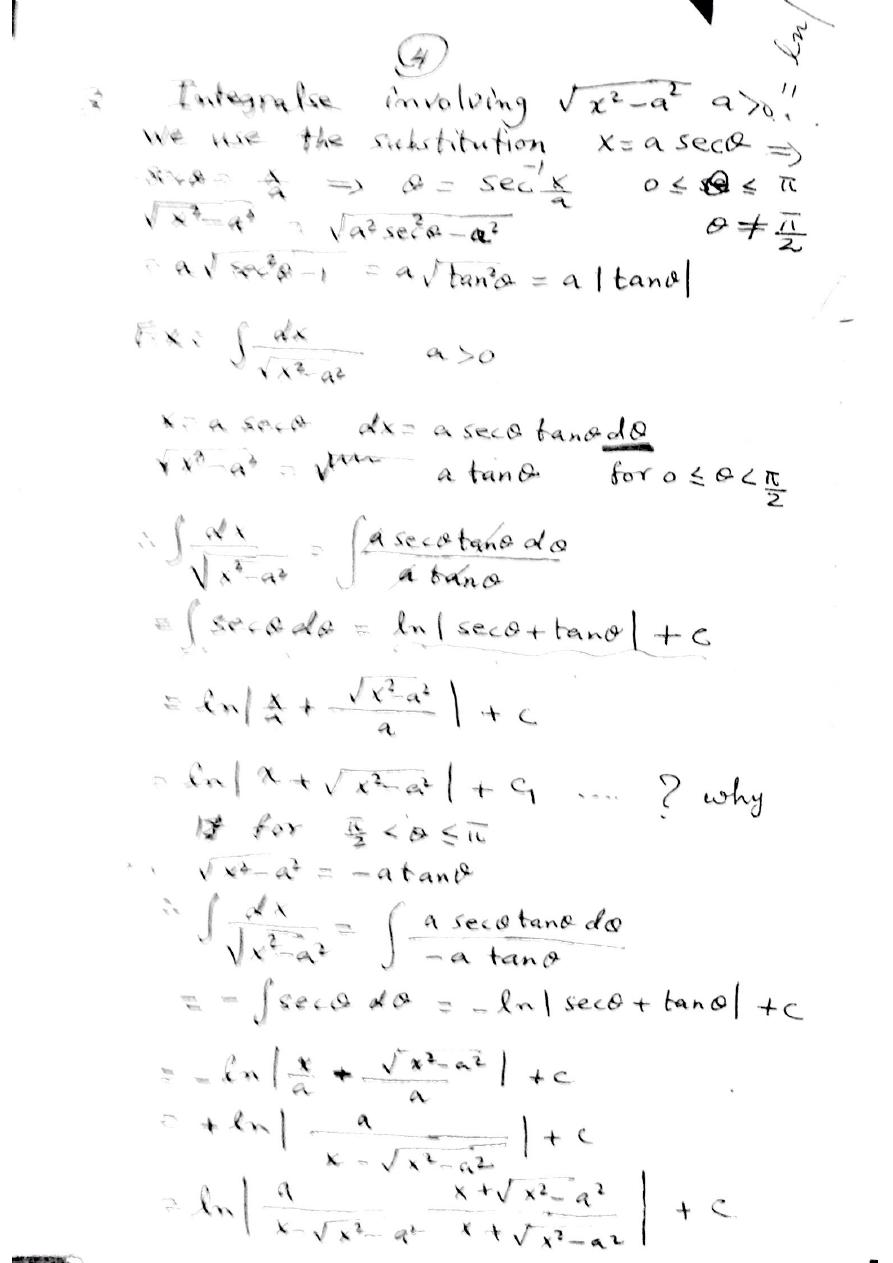 4
= ln/
Integralse involving √(x²-a²) a>0.
we use the substitution x = a secθ ⇒
x/a ⇒ θ = sec⁻¹ x/a 0 ≤ θ ≤ π
√(x²-a²) = √(a² sec²θ - a²) θ ≠ π/2
= a √(sec²θ - 1) = a √(tan²θ) = a |tanθ|
Ex: ∫ dx/√(x²-a²) a>0
x = a secθ dx = a secθ tanθ dθ
√(x²-a²) = a tanθ for 0 ≤ θ < π/2
∴ ∫ dx/√(x²-a²) = ∫ a secθ tanθ dθ / a tanθ
= ∫ secθ dθ = ln | secθ + tanθ | + c
= ln | x/a + √(x²-a²)/a | + c
= ln | x + √(x²-a²) | + c₁ .... ? why
for π/2 < θ ≤ π
√(x²-a²) = -a tanθ
∴ ∫ dx/√(x²-a²) = ∫ a secθ tanθ dθ / -a tanθ
= - ∫ secθ dθ = - ln | secθ + tanθ | + c
= - ln | x/a - √(x²-a²)/a | + c
= + ln | a/(x - √(x²-a²)) | + c
= ln | a/(x - √(x²-a²)) (x + √(x²-a²))/(x + √(x²-a²)) | + c